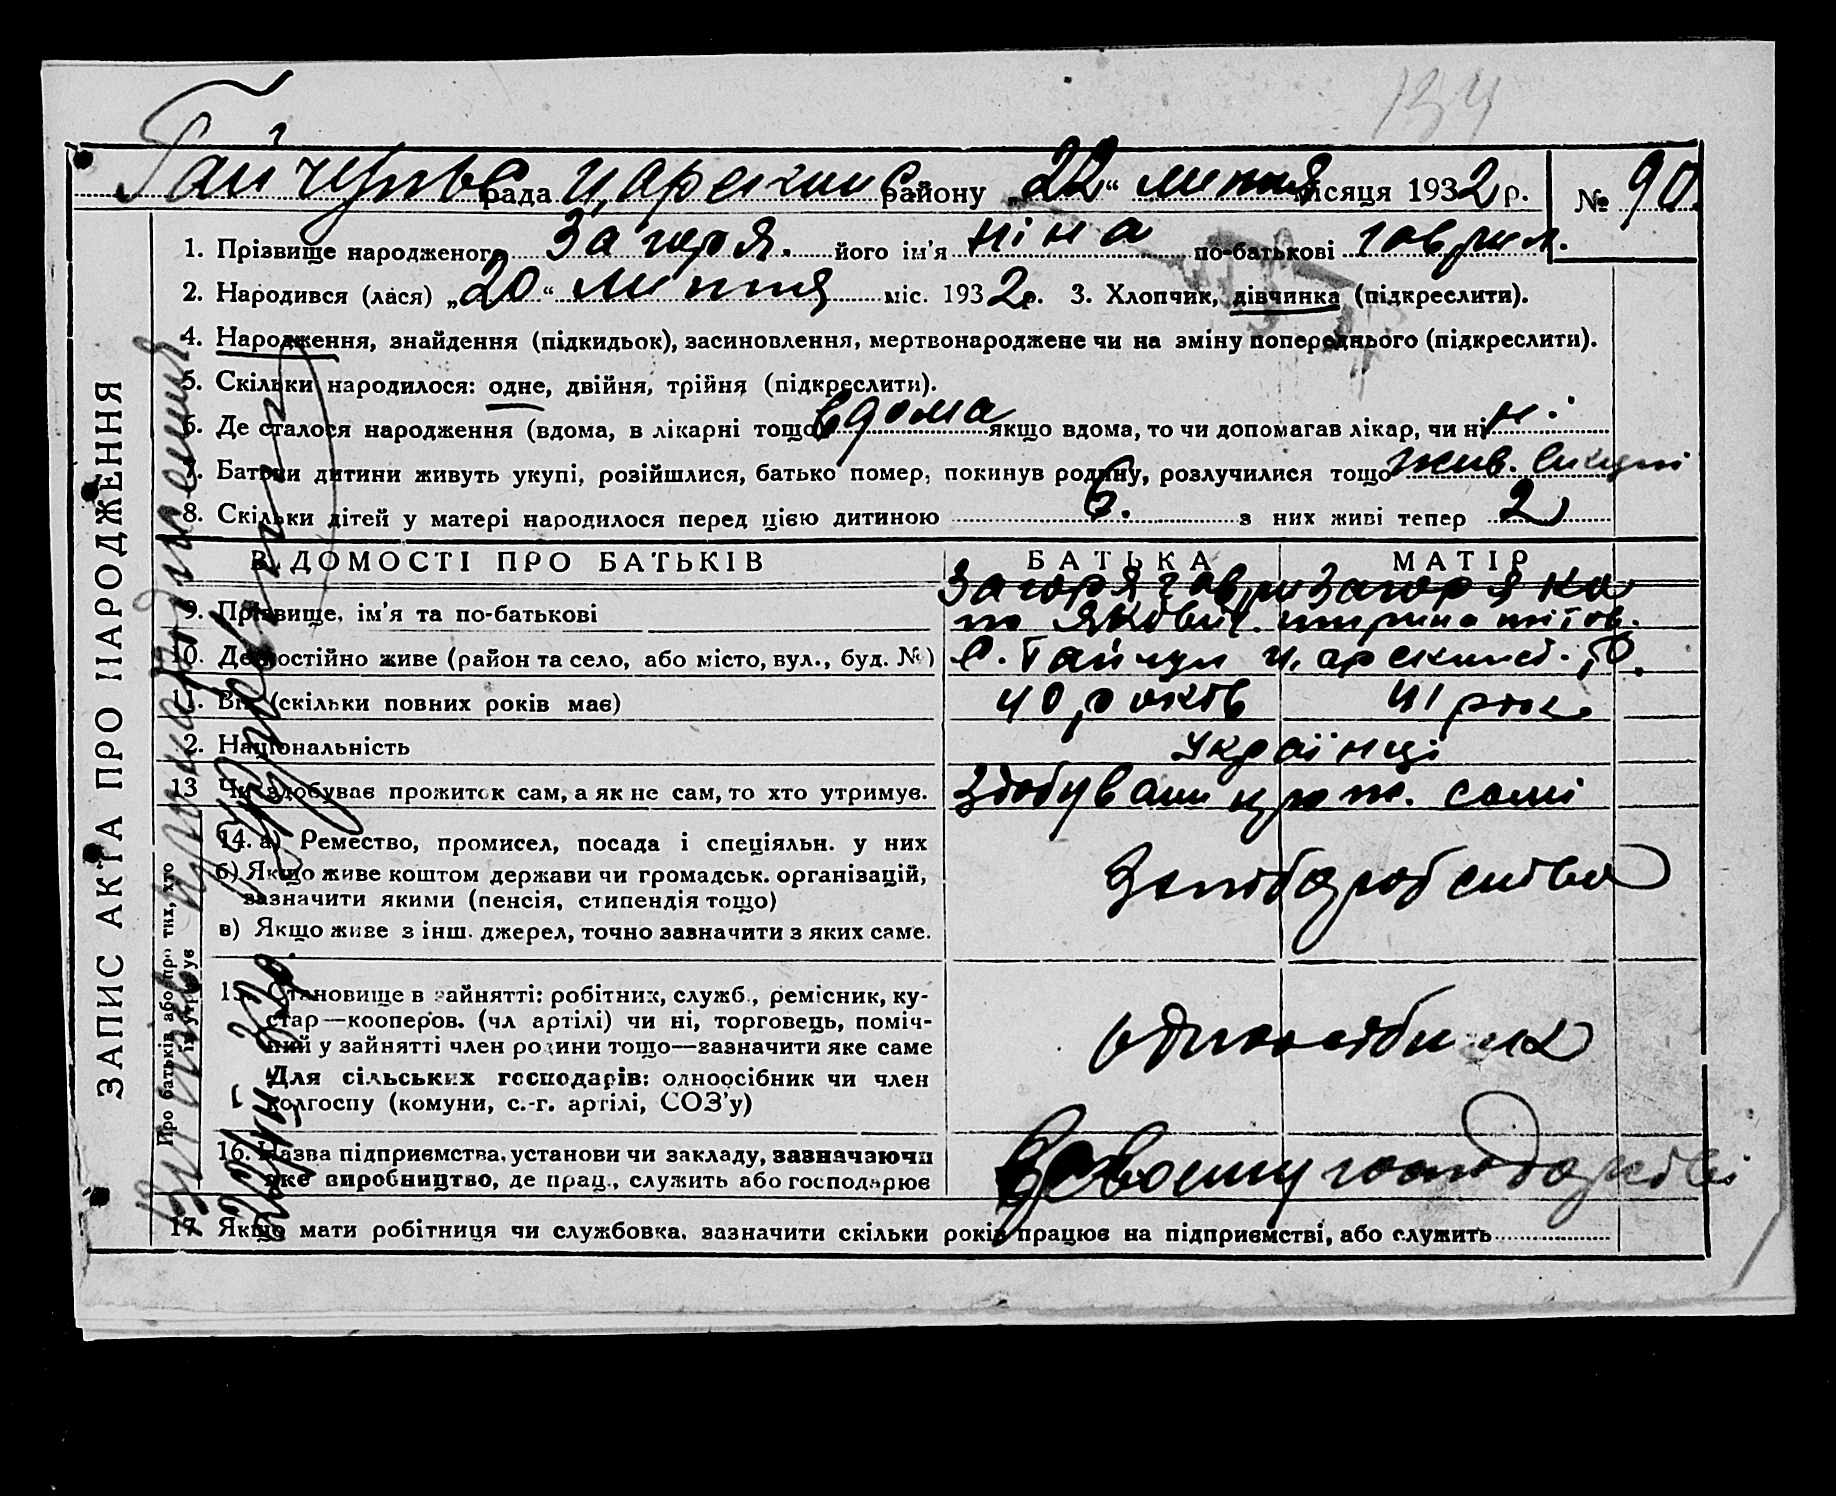 134
рада району „22“ липня місяця 1932 р. № 90
1. Прізвище народженого Загоря. його ім'я Ніна по-батькові Гаврил.
2. Народився (лася) „20“ липня міс. 1932 р. 3. Хлопчик, дівчинка (підкреслити).
4. Народження, знайдення (підкидьок), засиновлення, мертвонароджене чи на зміну попереднього (підкреслити).
5. Скільки народилося: одне, двійня, трійня (підкреслити).
6. Де сталося народження (вдома, в лікарні тощо вдома якщо вдома, то чи допомагав лікар, чи ні ні
7. Батьки дитини живуть укупі, розійшлися, батько помер, покинув родину, розлучилися тощо жив. вкупі
8. Скільки дітей у матері народилося перед цією дитиною 6. з них живі тепер 2
ЗАПИС АКТА ПРО НАРОДЖЕННЯ
ВІДОМОСТІ ПРО БАТЬКІВ БАТЬКА МАТІР
9. Прізвище, ім'я та по-батькові Загоря Гаври Загоря
Якович.
10. Де постійно живе (район та село, або місто, вул., буд. №) С. Гайчул
11. Вік (скільки повних років має) 40 років 41 рок.
12. Національність Українці
13 Чи здобуває прожиток сам, а як не сам, то хто утримує. Здобували прож. самі
Про батьків або про тих, хто їх утримує
14. а) Ремество, промисел, посада і спеціяльн. у них
б) Якщо живе коштом держави чи громадськ. організацій,
зазначити якими (пенсія, стипендія тощо)
в) Якщо живе з інш. джерел, точно зазначити з яких саме.
15. Становище в зайнятті: робітник, служб., ремісник, ку-
стар—кооперов. (чл артілі) чи ні, торговець, поміч-
ний у зайнятті член родини тощо—зазначити яке саме
Для сільських господарів: одноосібник чи член
колгоспу (комуни, с.-г. артілі, СОЗ'у)
одноосібник
16. Назва підприємства, установи чи закладу, зазначаючи
яке виробництво, де прац., служить або господарює
своєму господарстві
17. Якщо мати робітниця чи службовка, зазначити скільки років працює на підприємстві, або служить